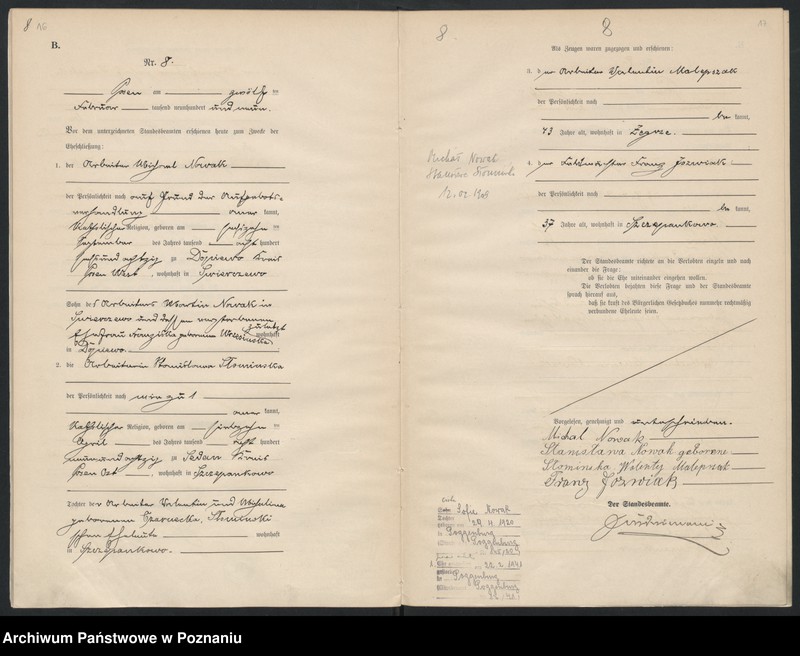 8 16
B.
Nr. 8.
Posen am zwölften
Februar tausend neunhundert und neun.
Vor dem unterzeichneten Standesbeamten erschienen heute zum Zwecke der
Eheschließung:
1. der Arbeiter Michael Nowak
der Persönlichkeit nach auf Grund der Aufgebots-
verhandlung anerkannt,
katholischer Religion, geboren am
September des Jahres tausend acht hundert
sechsundachtzig zu Dopiewo Kreis
Posen West, wohnhaft in Swierczewo
Sohn des Arbeiters Martin Nowak in
Swierczewo und dessen verstorbenen
Ehefrau Franziska geborenen zuletzt wohnhaft
in Dopiewo.
2. die Arbeiterin Stanislawa Slominska
der Persönlichkeit nach wie zu 1
anerkannt,
katholischer Religion, geboren am siebzehnten
April des Jahres tausend acht hundert
neunundachtzig zu Sedan Kreis
Posen Ost, wohnhaft in Szczepankowo
Tochter der Arbeiter Valentin und Michalina
geborenen Slominski
schen Eheleute wohnhaft
in Szczepankowo.
8. 8 17
Als Zeugen waren zugezogen und erschienen:
3. der Arbeiter Valentin Malepszak
der Persönlichkeit nach
bekannt,
73 Jahre alt, wohnhaft in Zegrze.
4. der Franz Jozwiak
der Persönlichkeit nach
bekannt,
37 Jahre alt, wohnhaft in Szczepankowo
Nowak
12.02.1909
Der Standesbeamte richtete an die Verlobten einzeln und nach
einander die Frage:
ob sie die Ehe miteinander eingehen wollen.
Die Verlobten bejahten diese Frage und der Standesbeamte
sprach hierauf aus,
daß sie kraft des Bürgerlichen Gesetzbuches nunmehr rechtmäßig
verbundene Eheleute seien.
Vorgelesen, genehmigt und unterschrieben.
Michal Nowak
Stanislawa Nowak geborene
Slominska Walenty Malepszak
Franz Jozwiak
Der Standesbeamte.
Sofie Nowak
1920
in Poggenburg
Poggenburg
Poggenburg
Archiwum Państwowe w Poznaniu